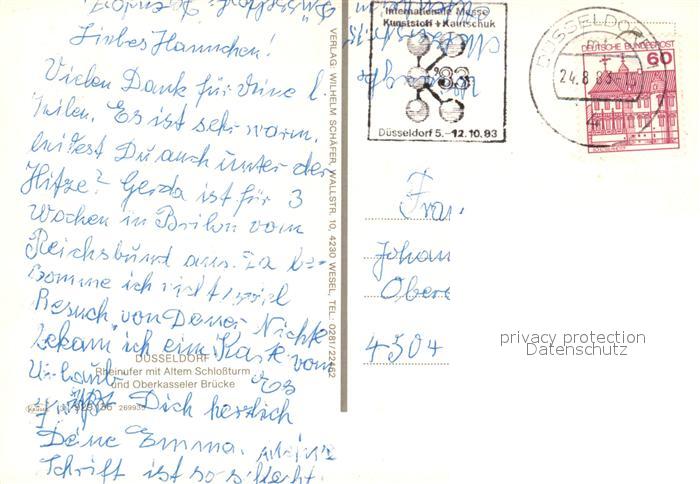 Liebes Hannchen!
Vielen Dank für Deine l.
Zeilen. Es ist sehr warm,
leidest Du auch unter der
Hitze? Gerda ist für 3
Wochen in Brilon vom
Reichsbund aus. Da be-
komme ich nicht soviel
Besuch, von Deiner Nichte
bekam ich eine Karte vom
Urlaub. Es
grüßt Dich herzlich
Deine Emma. Meine
Schrift ist so schlecht.
DÜSSELDORF
Rheinufer mit Altem Schloßturm
und Oberkasseler Brücke
VERLAG: WILHELM SCHÄFER, WALLSTR. 10, 4230 WESEL, TEL. 0281/22462
Internationale Messe
Kunststoff+Kautschuk
'83
Düsseldorf 5.-12.10.83
DÜSSELDORF
24.8.83
DEUTSCHE BUNDESPOST
60
Frau
Johan
Ober
4504
privacy protection
Datenschutz